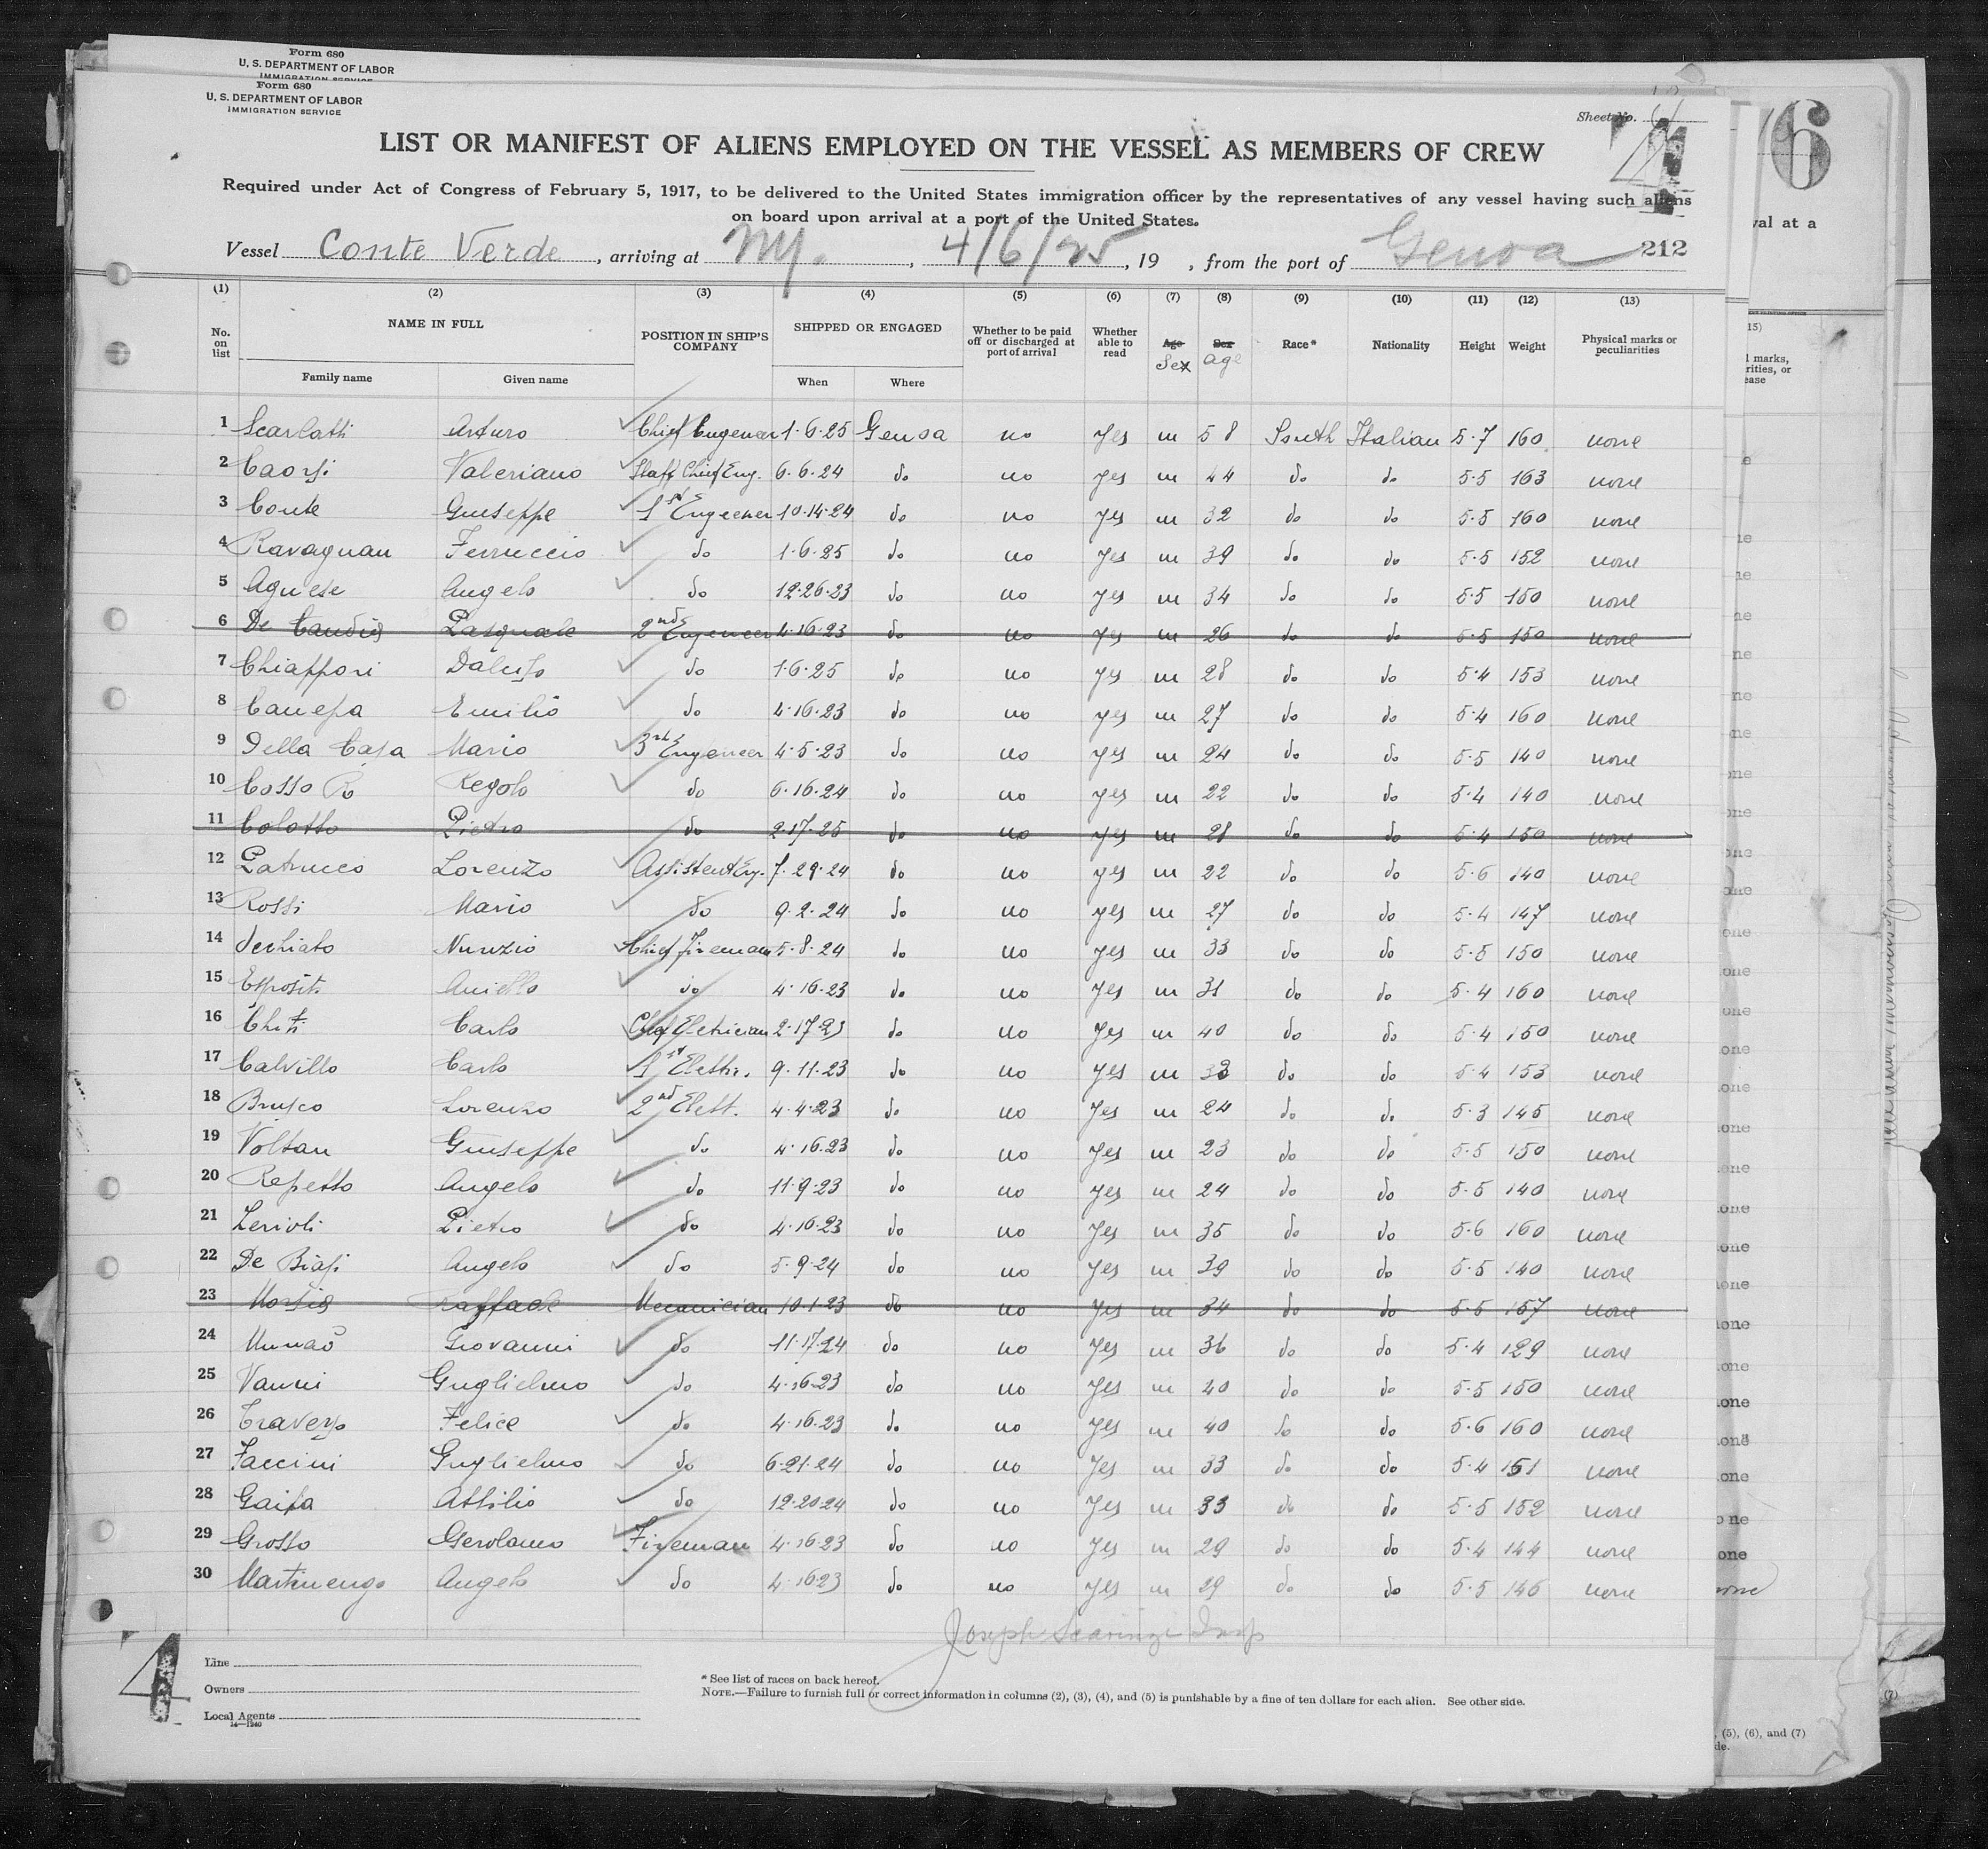 Form 680
U. S. DEPARTMENT OF LABOR
IMMIGRATION SERVICE
Form 680
U. S. DEPARTMENT OF LABOR
IMMIGRATION SERVICE
Sheet No.
4
6
LIST OR MANIFEST OF ALIENS EMPLOYED ON THE VESSEL AS MEMBERS OF CREW
Required under Act of Congress of February 5, 1917, to be delivered to the United States immigration officer by the representatives of any vessel having such aliens
on board upon arrival at a port of the United States.
val at a
Vessel Conte Verde, arriving at NY., 4/6/25, 19 , from the port of Genoa 212
(1) (2) (3) (4) (5) (6) (7) (8) (9) (10) (11) (12) (13)
No. on list NAME IN FULL POSITION IN SHIP'S COMPANY SHIPPED OR ENGAGED Whether to be paid off or discharged at port of arrival Whether able to read Age Sex Sex Age Race* Nationality Height Weight Physical marks or peculiarities
Family name Given name When Where
1 Scarlatti Arturo Chief Engeneer 1-6-25 Genoa no yes m 58 South Italian 5-7 160 none
2 Caorsi Valeriano Staff Chief Eng. 6-6-24 do no yes m 44 do do 5-5 163 none
3 Conte Giuseppe 1st Engeener 10-14-24 do no yes m 32 do do 5-5 160 none
4 Ravagnan Ferruccio do 1-6-25 do no yes m 39 do do 5-5 152 none
5 Agnese Angelo do 12-26-23 do no yes m 34 do do 5-5 150 none
6 De Pasquale 2nd Engeneer 4-16-23 do no yes m 26 do do 5-5 150 none
7 Chiappori do 1-6-25 do no yes m 28 do do 5-4 153 none
8 Canepa Emilio do 4-16-23 do no yes m 27 do do 5-4 160 none
9 Della Casa Mario 3rd Engeneer 4-5-23 do no yes m 24 do do 5-5 140 none
10 Cosso R Regolo do 6-16-24 do no yes m 22 do do 5-4 140 none
11 Colotto Pietro do 2-17-25 do no yes m 28 do do 5-4 150 none
12 Patrucco Lorenzo Assistent Eng. 7-29-24 do no yes m 22 do do 5-6 140 none
13 Rossi Mario do 9-2-24 do no yes m 27 do do 5-4 147 none
14 Nunzio Chief Fireman 5-8-24 do no yes m 33 do do 5-5 150 none
15 Esposito Aniello do 4-16-23 do no yes m 31 do do 5-4 160 none
16 Chiti Carlo Chief Eletrician 2-17-23 do no yes m 40 do do 5-4 150 none
17 Calvillo Carlo 1st Elettr. 9-11-23 do no yes m 33 do do 5-4 153 none
18 Brusco Lorenzo 2nd Elett. 4-4-23 do no yes m 24 do do 5-3 145 none
19 Voltan Giuseppe do 4-16-23 do no yes m 23 do do 5-5 150 none
20 Repetto Angelo do 11-9-23 do no yes m 24 do do 5-5 140 none
21 Zerioli Pietro do 4-16-23 do no yes m 35 do do 5-6 160 none
22 De Biasi Angelo do 5-9-24 do no yes m 39 do do 5-5 140 none
23 Raffaele Mecanician 10-1-23 do no yes m 34 do do 5-5 157 none
24 Munaò Giovanni do 11-17-24 do no yes m 36 do do 5-4 129 none
25 Vanni Guglielmo do 4-16-23 do no yes m 40 do do 5-5 150 none
26 Traverso Felice do 4-16-23 do no yes m 40 do do 5-6 160 none
27 Faccini Guglielmo do 6-21-24 do no yes m 33 do do 5-4 151 none
28 Gaita Attilio do 12-20-24 do no yes m 33 do do 5-5 152 none
29 Grosso Gerolamo Fireman 4-16-23 do no yes m 29 do do 5-4 144 none
30 Martinengo Angelo do 4-16-23 do no yes m 29 do do 5-5 146 none
Joseph Scaringi Insp
4
Line
Owners
Local Agents
14—1240
* See list of races on back hereof.
NOTE.—Failure to furnish full or correct information in columns (2), (3), (4), and (5) is punishable by a fine of ten dollars for each alien. See other side.
, (5), (6), and (7)